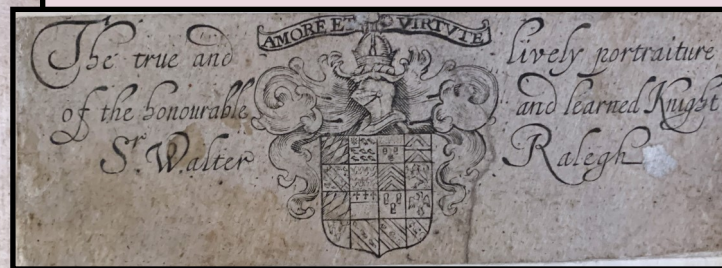 AMORE ET VIRTVTE
The true and lively portraiture
of the honourable and learned Knight
Sr. Walter Ralegh